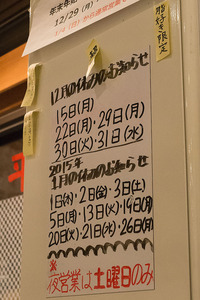 年末年始
12/29(月)
1/4(日)から通常営業
脂好き限定
12月の休みのお知らせ
15日(月)
22日(月)・29日(月)
30日(火)・31日(水)
2015年
1月の休みのお知らせ
1日(木)・2日(金)・3日(土)
5日(月)・13日(火)・19日(月)
20日(火)・21日(水)・26日(月)
※
夜営業は土曜日のみ